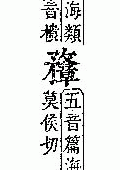 海類
音
五音篇海
莫侯切